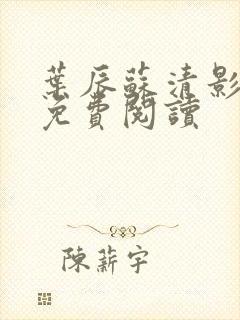 葉辰蘇清影
免費閱讀
陳薪宇